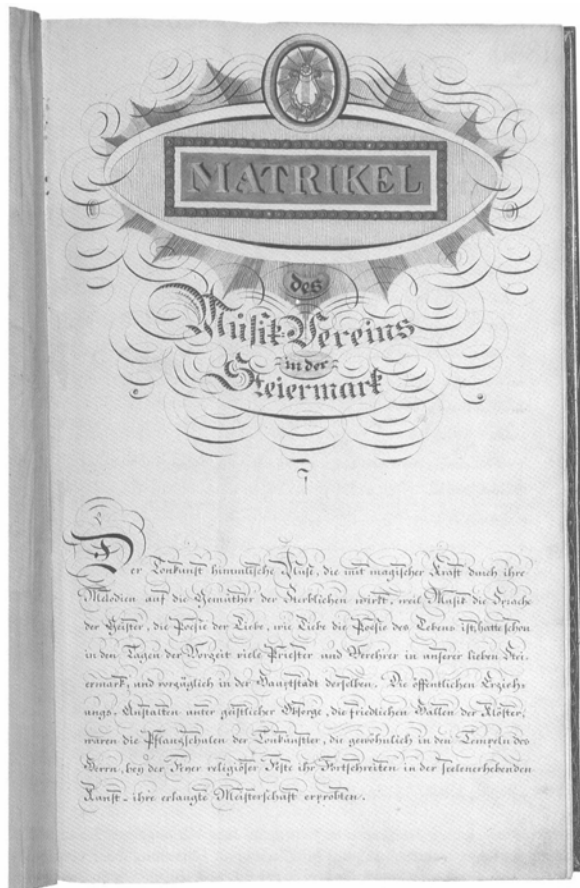 MATRIKEL
des
Musik-Vereins
in der
Steiermark
Der Tonkunst himmlische Muse, die mit magischer Kraft durch ihre
Melodien auf die Gemüther der Sterblichen wirkt, weil Musik die Sprache
der Geister, die Poesie der Liebe, wie Liebe die Poesie des Lebens ist, hatte schon
in den Tagen der Vorzeit viele Priester und Verehrer in unserer lieben Stei-
ermark, und vorzüglich in der Hauptstadt derselben. Die öffentlichen Erzieh-
ungs-Anstalten unter geistlicher Obsorge, die friedlichen Hallen der Klöster,
waren die Pflanzschulen der Tonkünstler, die gewöhnlich in den Tempeln des
Herrn, bey der Feyer religiöser Feste ihr Fortschreiten in der seelenerhebenden
Kunst - ihre erlangte Meisterschaft erprobten.